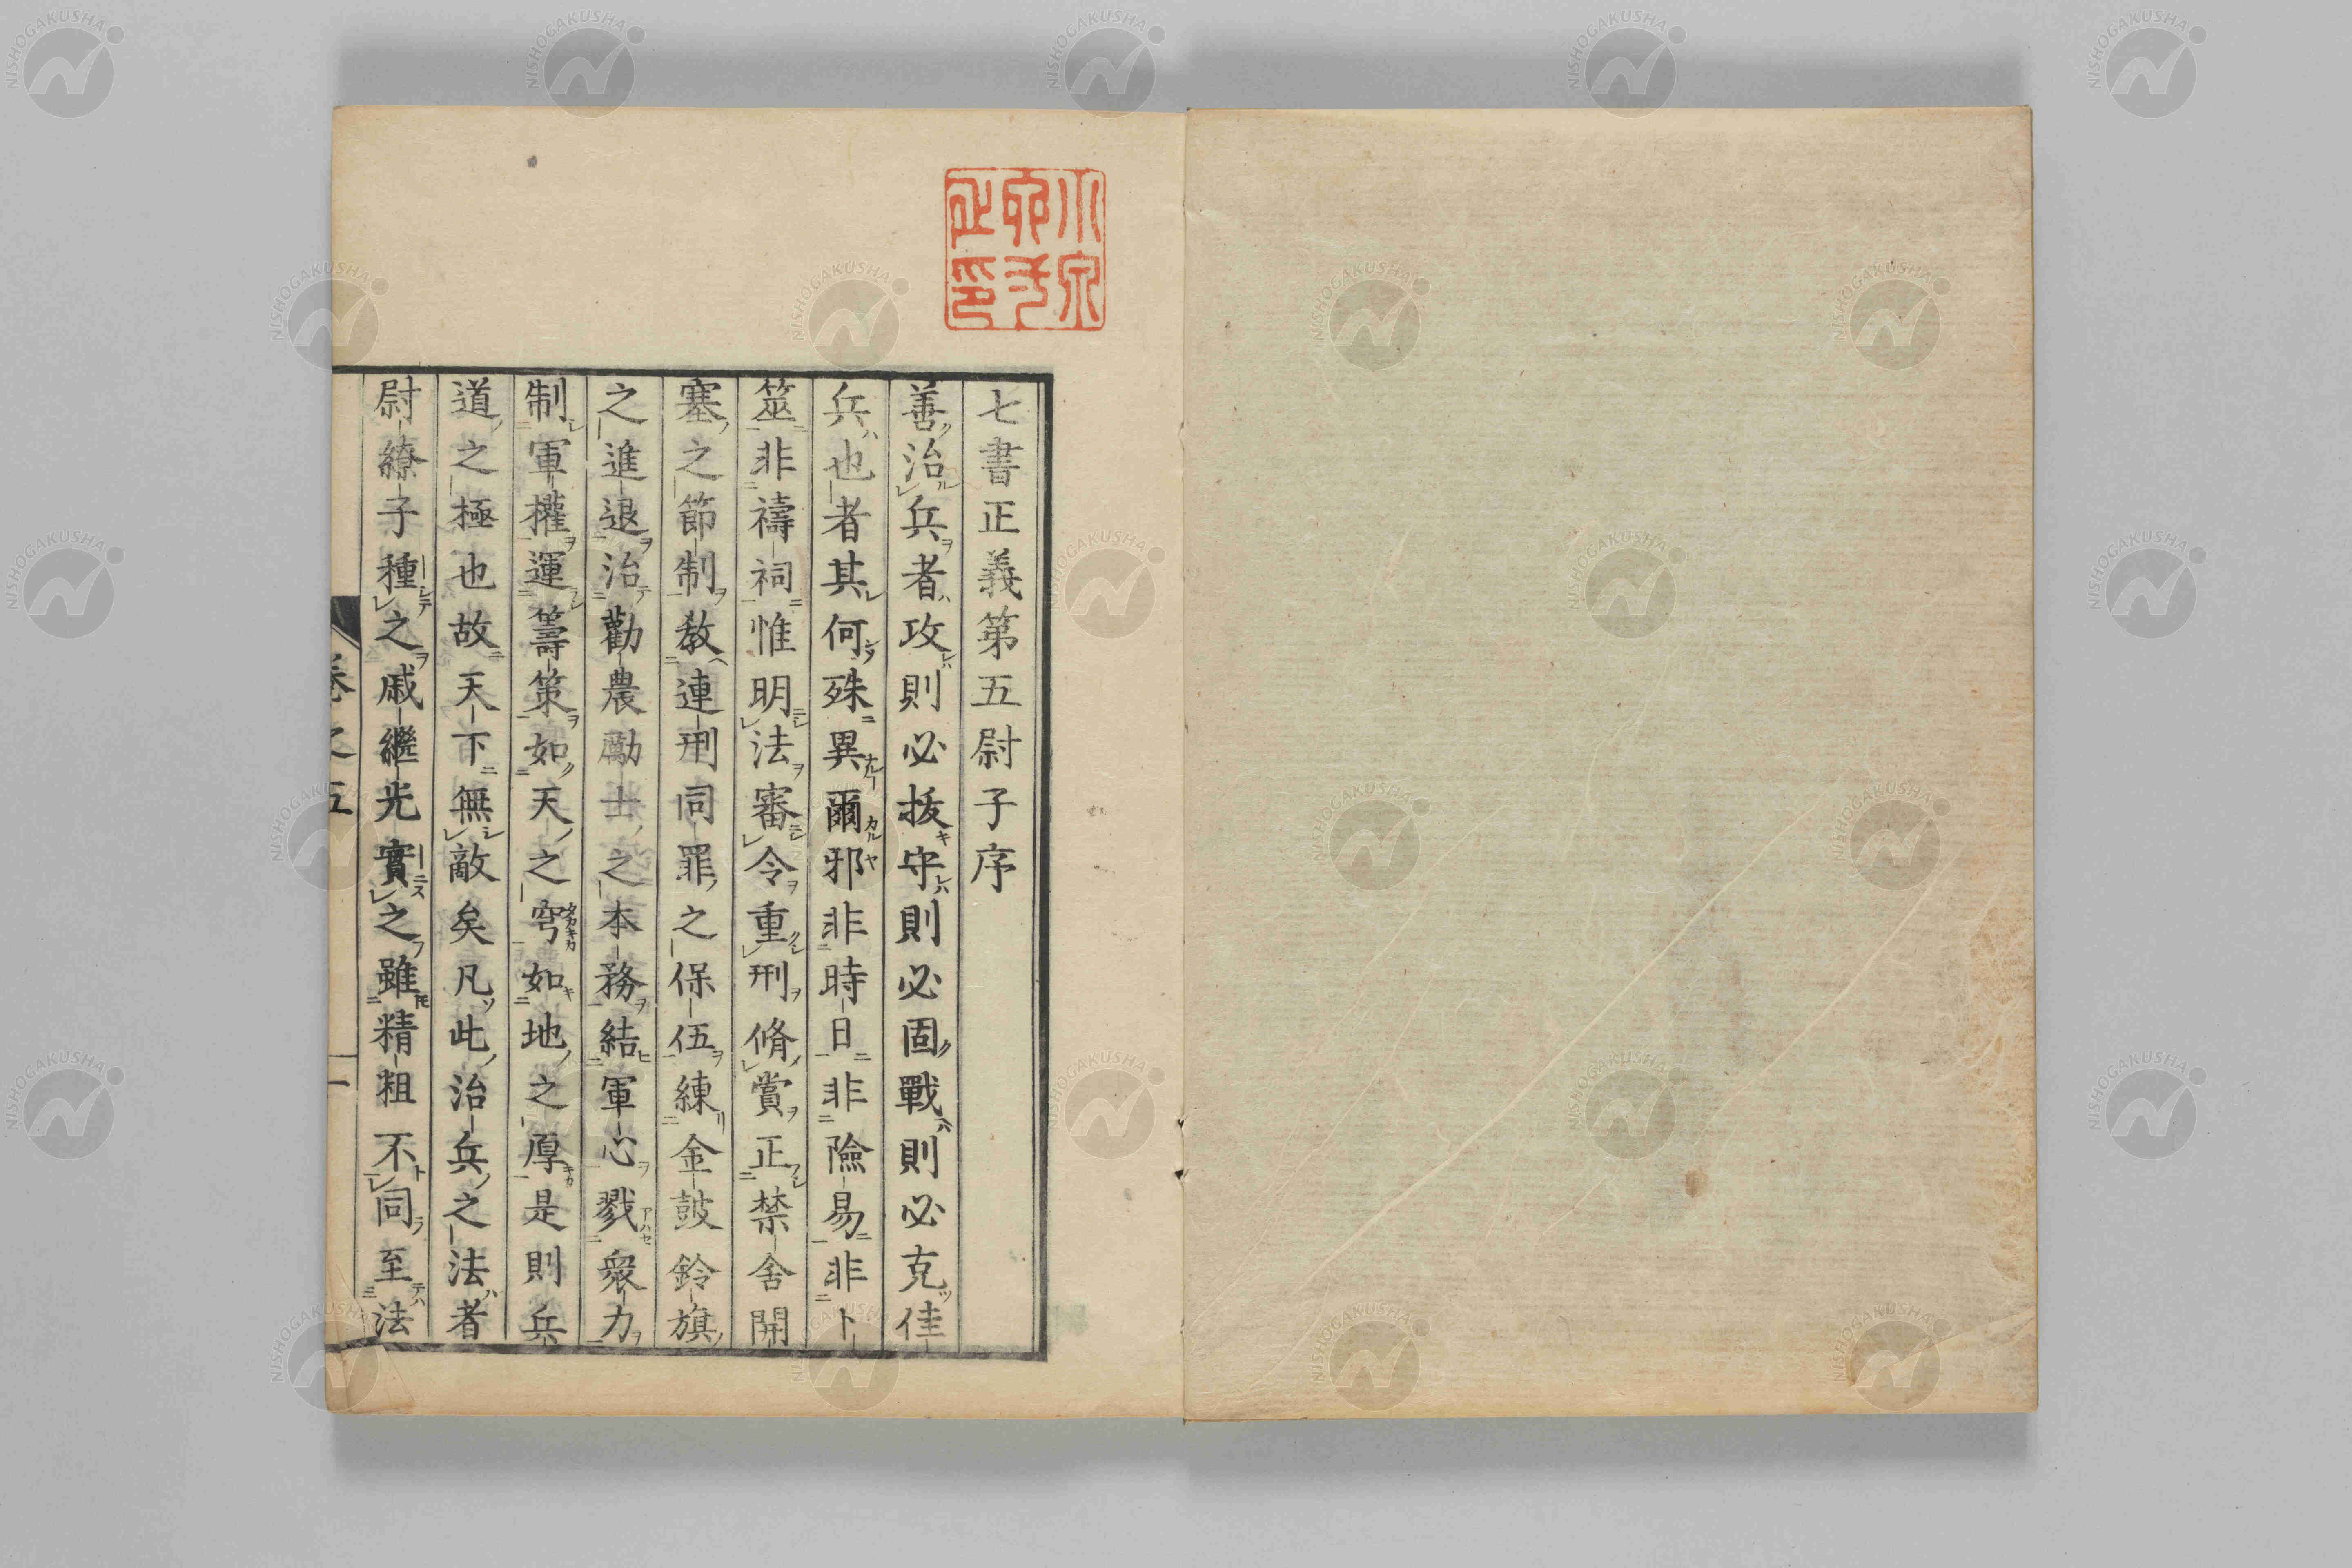 七書正義第五尉子序
善治兵者攻則必拔守則必固戰則必克佳
兵也者其何殊異爾邪非時日非險易非卜
筮非禱祠惟明法審令重刑脩賞正禁舍開
塞之節制教連刑同罪之保伍練金鼓鈴旗
之進退治勸農勵士之本務結軍心戮衆力
制軍權運籌策如天之穹如地之厚是則兵
道之極也故天下無敵矣凡此治兵之法者
尉繚子種之戚繼光實之雖精粗不同至法
卷之五
一
NISHOGAKUSHA